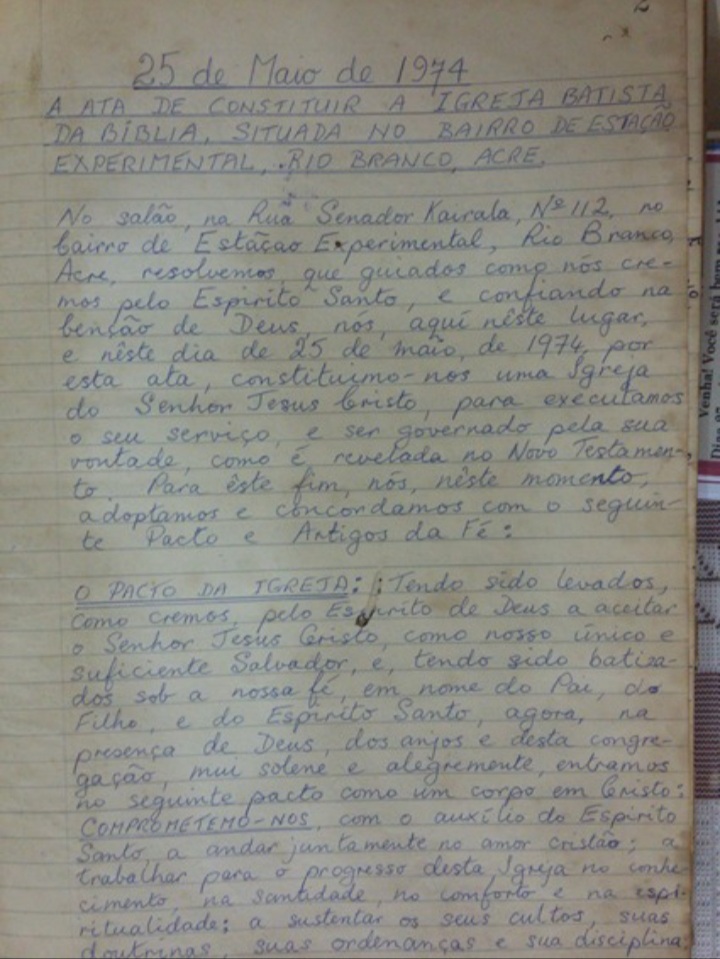 2
25 de Maio de 1974
A ATA DE CONSTITUIR A IGREJA BATISTA
DA BÍBLIA, SITUADA NO BAIRRO DE ESTAÇÃO
EXPERIMENTAL, RIO BRANCO, ACRE.
No salão, na Rua Senador Kairala, Nº 112, no
bairro de Estãçao Experimental, Rio Branco,
Acre, resolvemos, que guiados como nós cre-
mos pelo Espirito Santo, e confiando na
benção de Deus, nós, aquí nêste lugar,
e nêste dia de 25 de maio, de 1974, por
esta ata, constituimo-nos uma Igreja
do Senhor Jesus Cristo, para executamos
o seu serviço, e ser governado pela sua
vontade, como é revelada no Novo Testamen-
to. Para êste fim, nós, nêste momento,
adoptamos e concordamos com o seguin-
te Pacto e Artigos da Fé:
O PACTO DA IGREJA: Tendo sido levados,
como cremos, pelo Espirito de Deus a aceitar
o Senhor Jesus Cristo, como nosso único e
suficiente Salvador, e, tendo sido batiza-
dos sob a nossa fé, em nome do Pai, do
Filho, e do Espírito Santo, agora, na
presença de Deus, dos anjos e desta congre-
gação, mui solene e alegremente, entramos
no seguinte pacto como um corpo em Cristo:
COMPROMETEMO-NOS, com o auxílio do Espírito
Santo, a andar juntamente no amor cristão; a
trabalhar para o progresso desta Igreja no conhe-
cimento, na santidade, no comforto e na espi-
ritualidade; a sustentar os seus cultos, suas
doutrinas, suas ordenanças e sua disciplina;
Venha! Você será bem